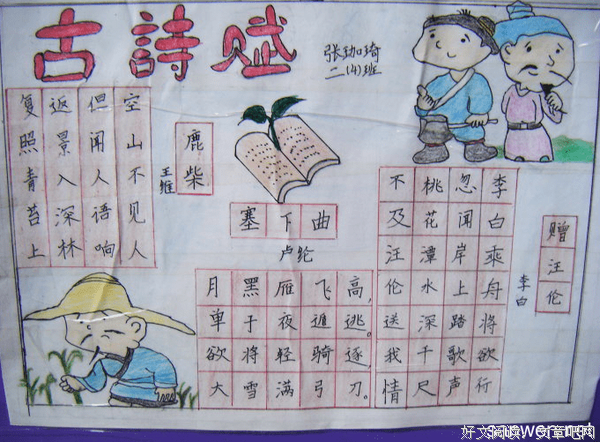 古詩赋
张珈琦
二(4)班
鹿柴
王维
空山不见人
但闻人语响
返景入深林
复照青苔上
塞下曲
卢纶
月黑雁飞高,
单于夜遁逃。
欲将轻骑逐,
大雪满弓刀。
赠汪伦
李白
李白乘舟将欲行
忽闻岸上踏歌声
桃花潭水深千尺
不及汪伦送我情